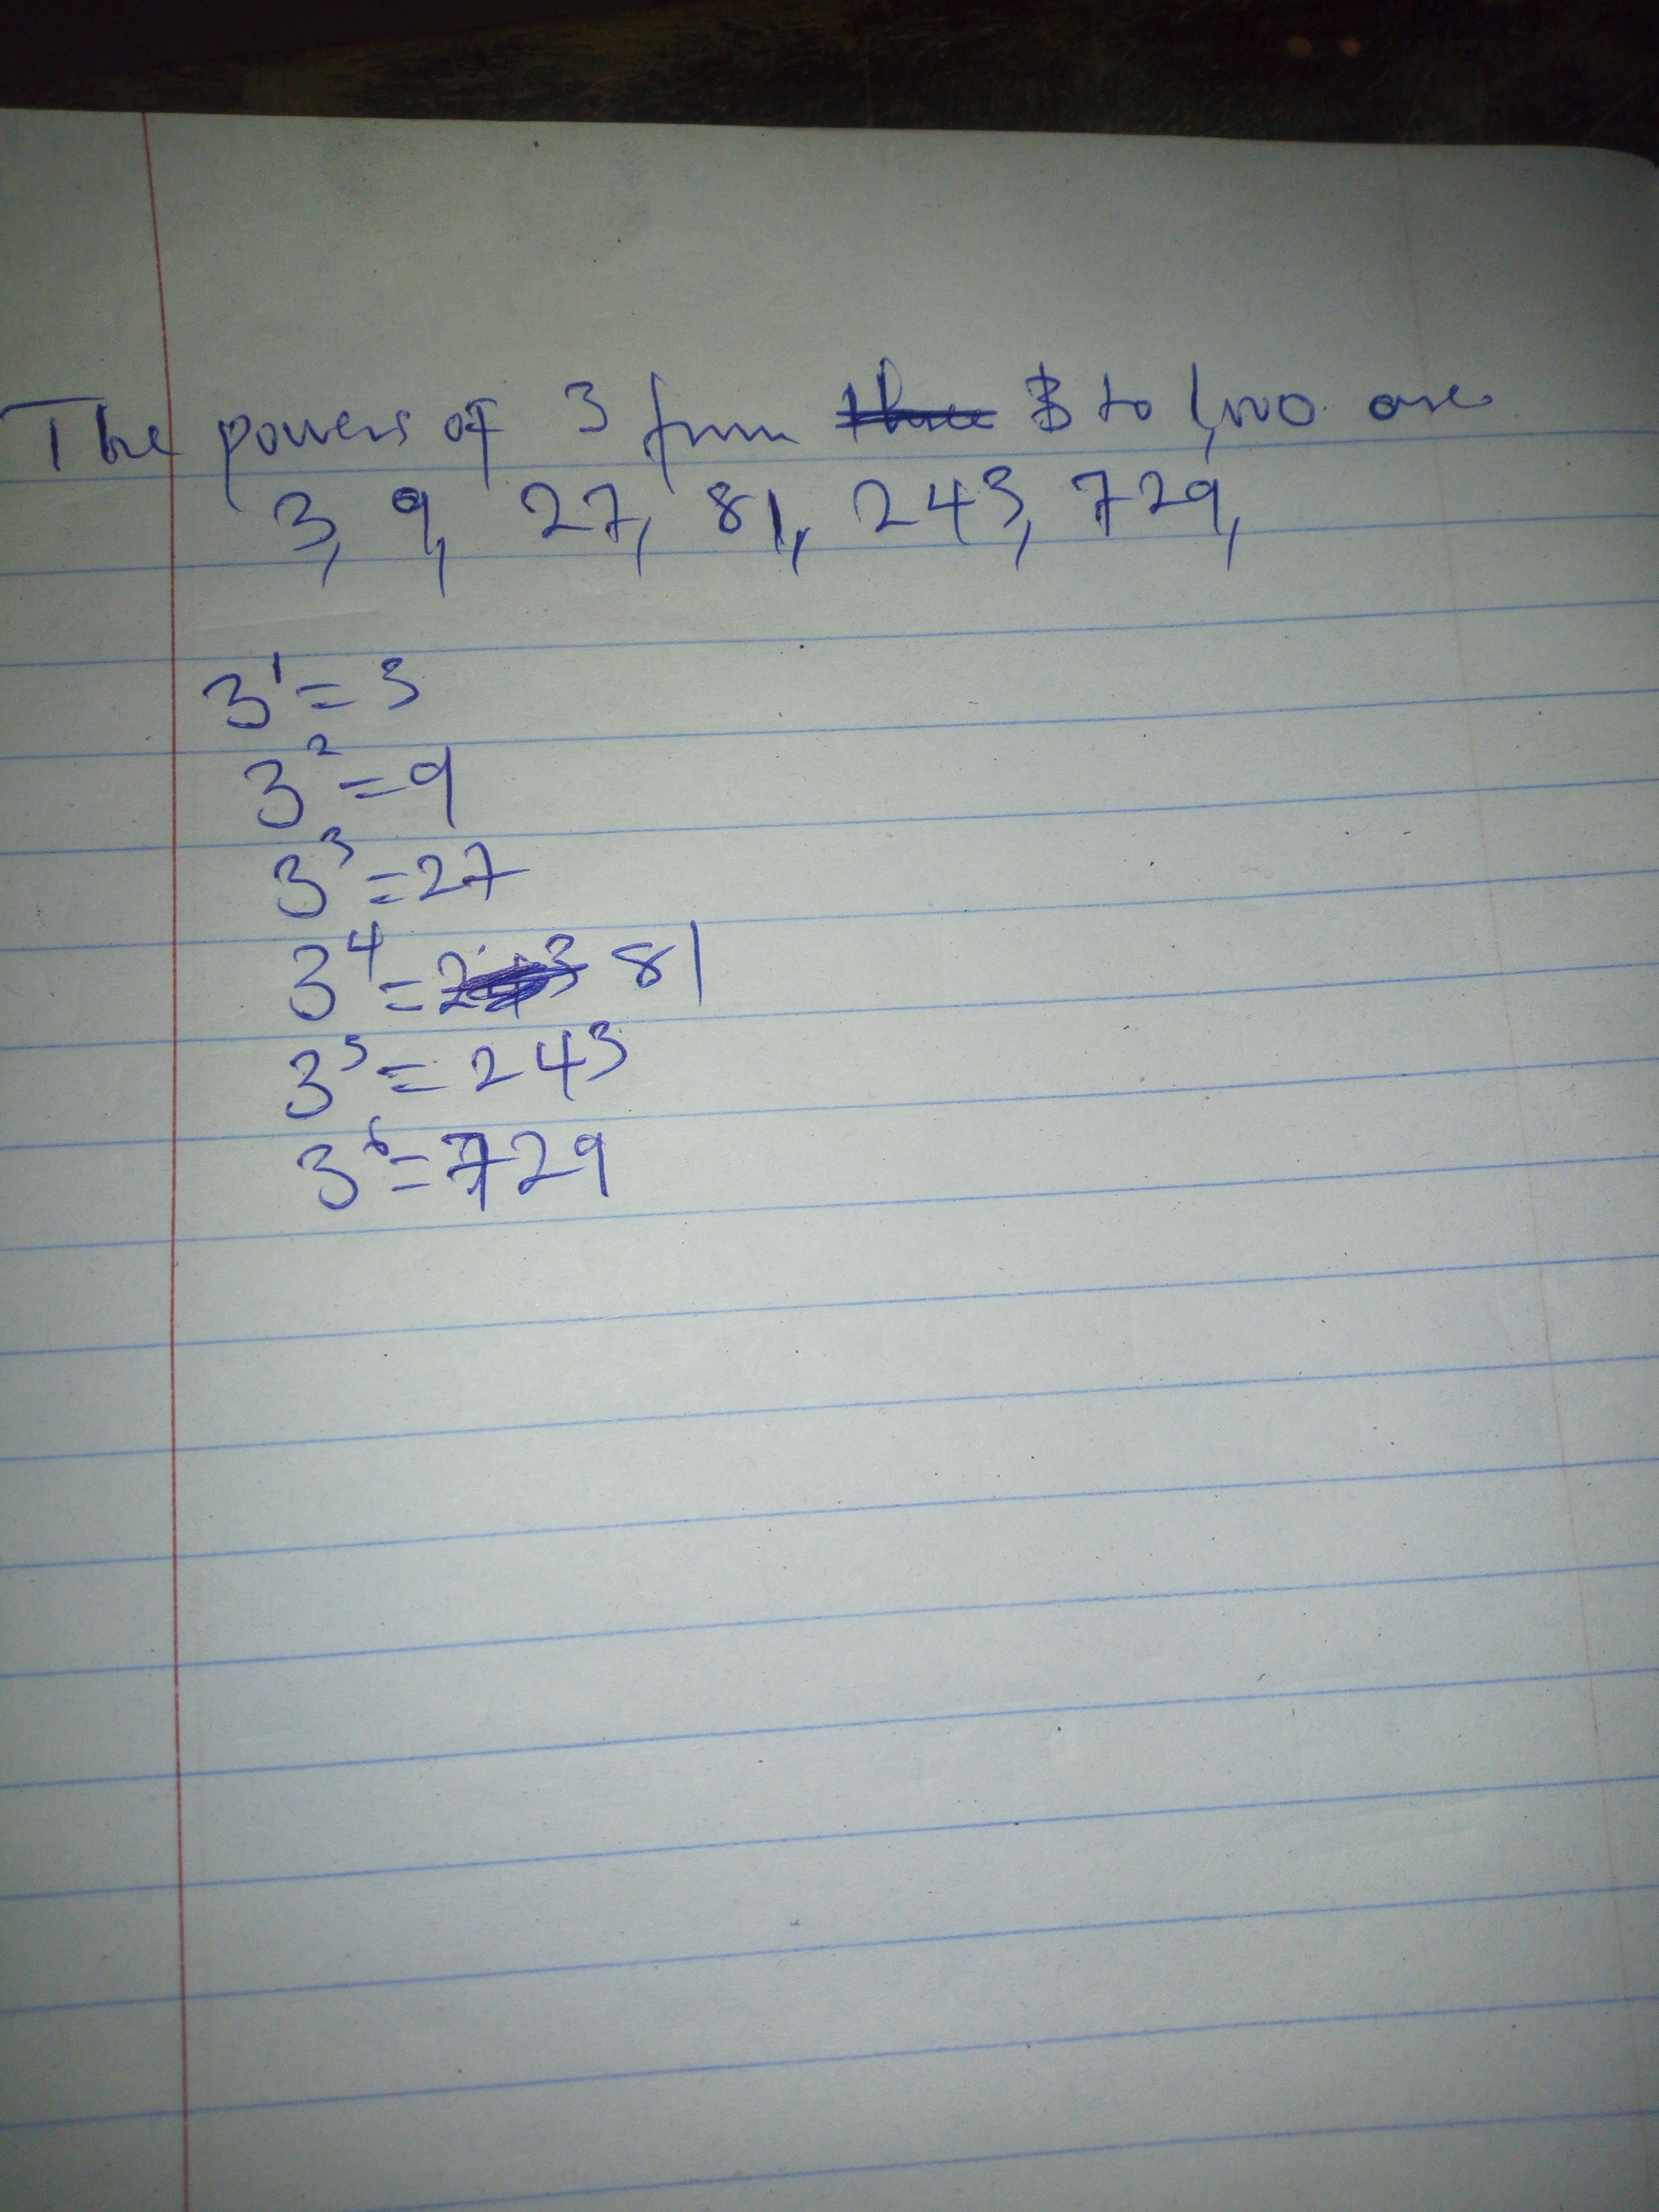 The powers of 3 from 3 to 1,000 are
3, 9, 27, 81, 243, 729,
3¹ = 3
3² = 9
3³ = 27
3⁴ = 81
3⁵ = 243
3⁶ = 729